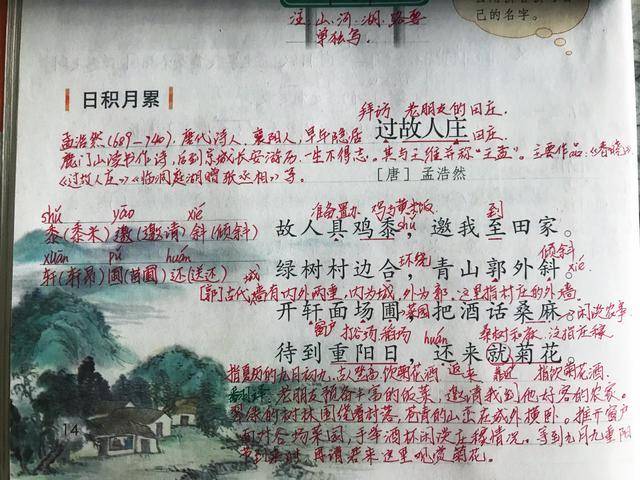 注:山、河、湖、路要
单独写。
己的名字。
日积月累
拜访 老朋友的田庄.
过故人庄 田庄.
孟浩然(689—740),唐代诗人,襄阳人,早年隐居
鹿门山读书作诗,后到京城长安游历,一生不得志。其与王维并称“王孟”。主要作品:《春晓》
《过故人庄》《临洞庭湖赠张丞相》等.
[唐] 孟浩然
shǔ yāo xié
黍(黍米)邀(邀请)斜(倾斜)
xuān pǔ huán
轩(轩昂)圃(苗圃)还(送还)
准备置办 鸡与黄米饭 到
故人具鸡黍shǔ,邀我至田家。
环绕 倾斜
绿树村边合,青山郭外斜xié。
[郭]古代城墙有内外两重,内为城,外为郭.这里指村庄的外墙
开轩面场圃菜园,把酒话桑麻闲谈农事
窗户 打谷场 稻场 huán 桑树和麻.这指庄稼
待到重阳日,还来就菊花。
指夏历的九月初九,古人登高饮菊花酒 返来 指饮菊花酒.
老朋友预备丰富的饭菜,邀请我到他好客的农家。
翠绿的树林围绕着村落,苍青的山峦在城外横卧。推开窗户
面对谷场菜园,手举酒杯闲谈庄稼情况。等到九月九重阳
节到来时,再请君来这里观赏菊花。
14